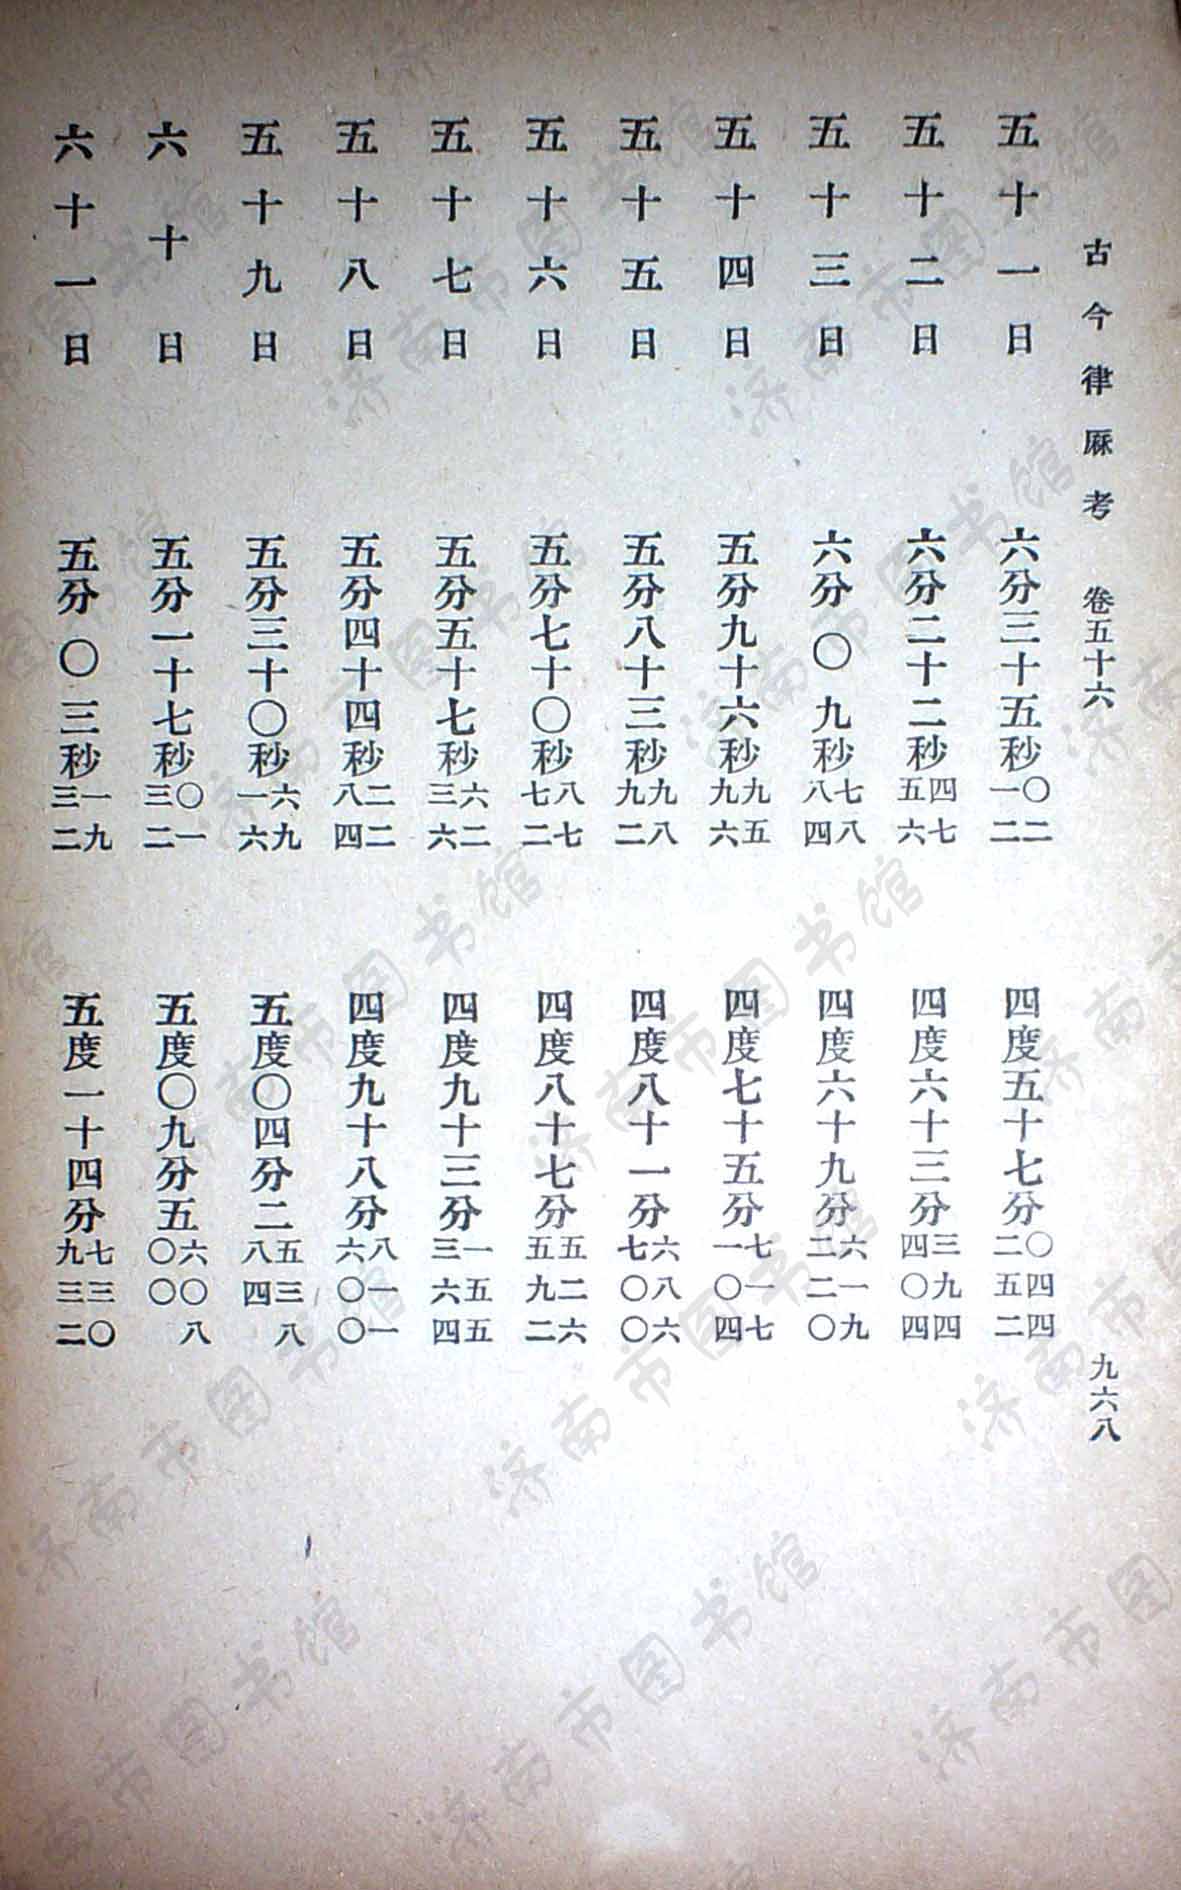 古今律厤考 卷五十六 九六八
五十一日 六分三十五秒〇二一二 四度五十七分〇四四二五二
五十二日 六分二十二秒四七五六 四度六十三分三九四四〇四
五十三日 六分〇九秒七八八四 四度六十九分六一九二二〇
五十四日 五分九十六秒九五九六 四度七十五分七一七一〇四
五十五日 五分八十三秒九八九二 四度八十一分六八六七〇〇
五十六日 五分七十〇秒八七七二 四度八十七分五二六五九二
五十七日 五分五十七秒六二三六 四度九十三分一五五三六四
五十八日 五分四十四秒二二八四 四度九十八分八一一六〇〇
五十九日 五分三十〇秒六九一六 五度〇四分二五三八八四
六十日 五分一十七秒〇一三二 五度〇九分五六〇八〇〇
六十一日 五分〇三秒一九三二 五度一十四分七三〇九三二